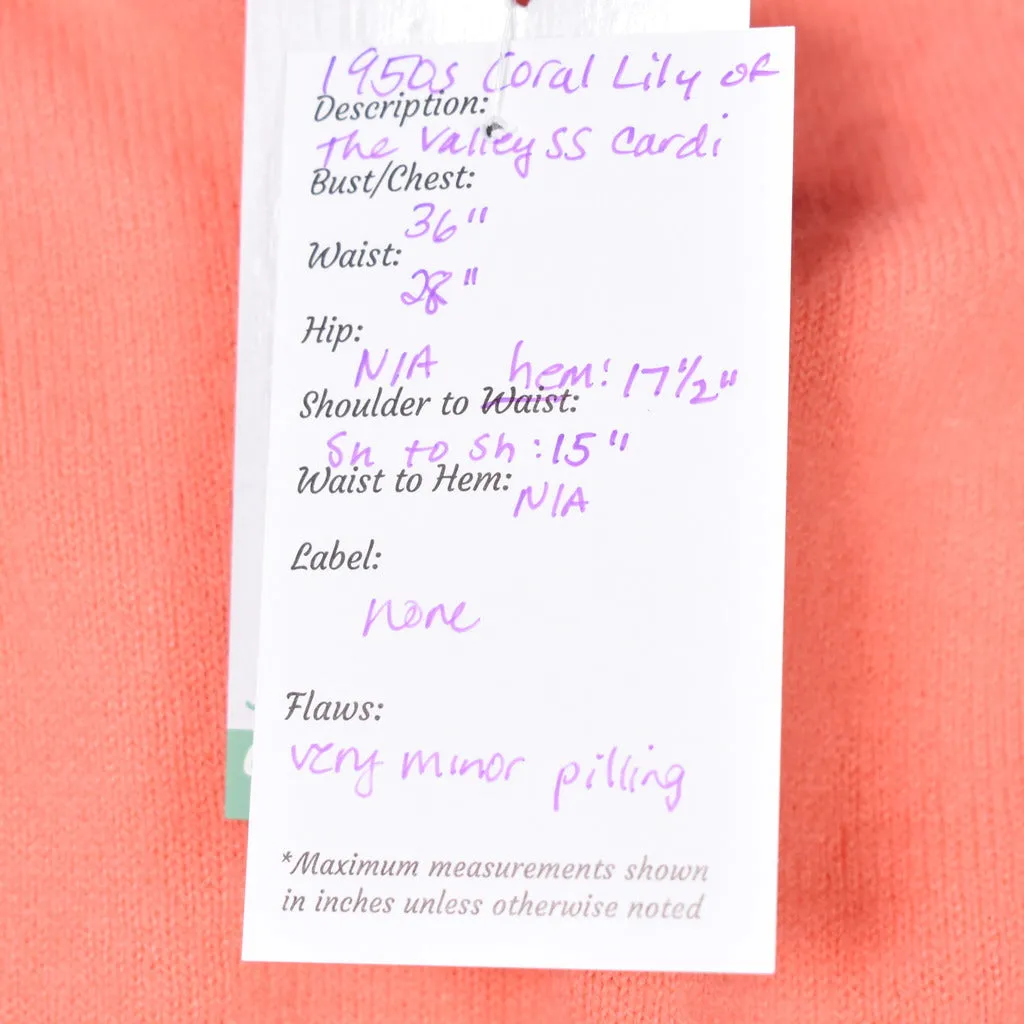 1950s Coral Lily of
Description:
the Valley SS Cardi
Bust/Chest:
36"
Waist:
28"
Hip:
N/A hem: 17½"
Shoulder to Waist:
Sh to Sh: 15"
Waist to Hem:
N/A
Label:
none
Flaws:
very minor pilling
*Maximum measurements shown
in inches unless otherwise noted